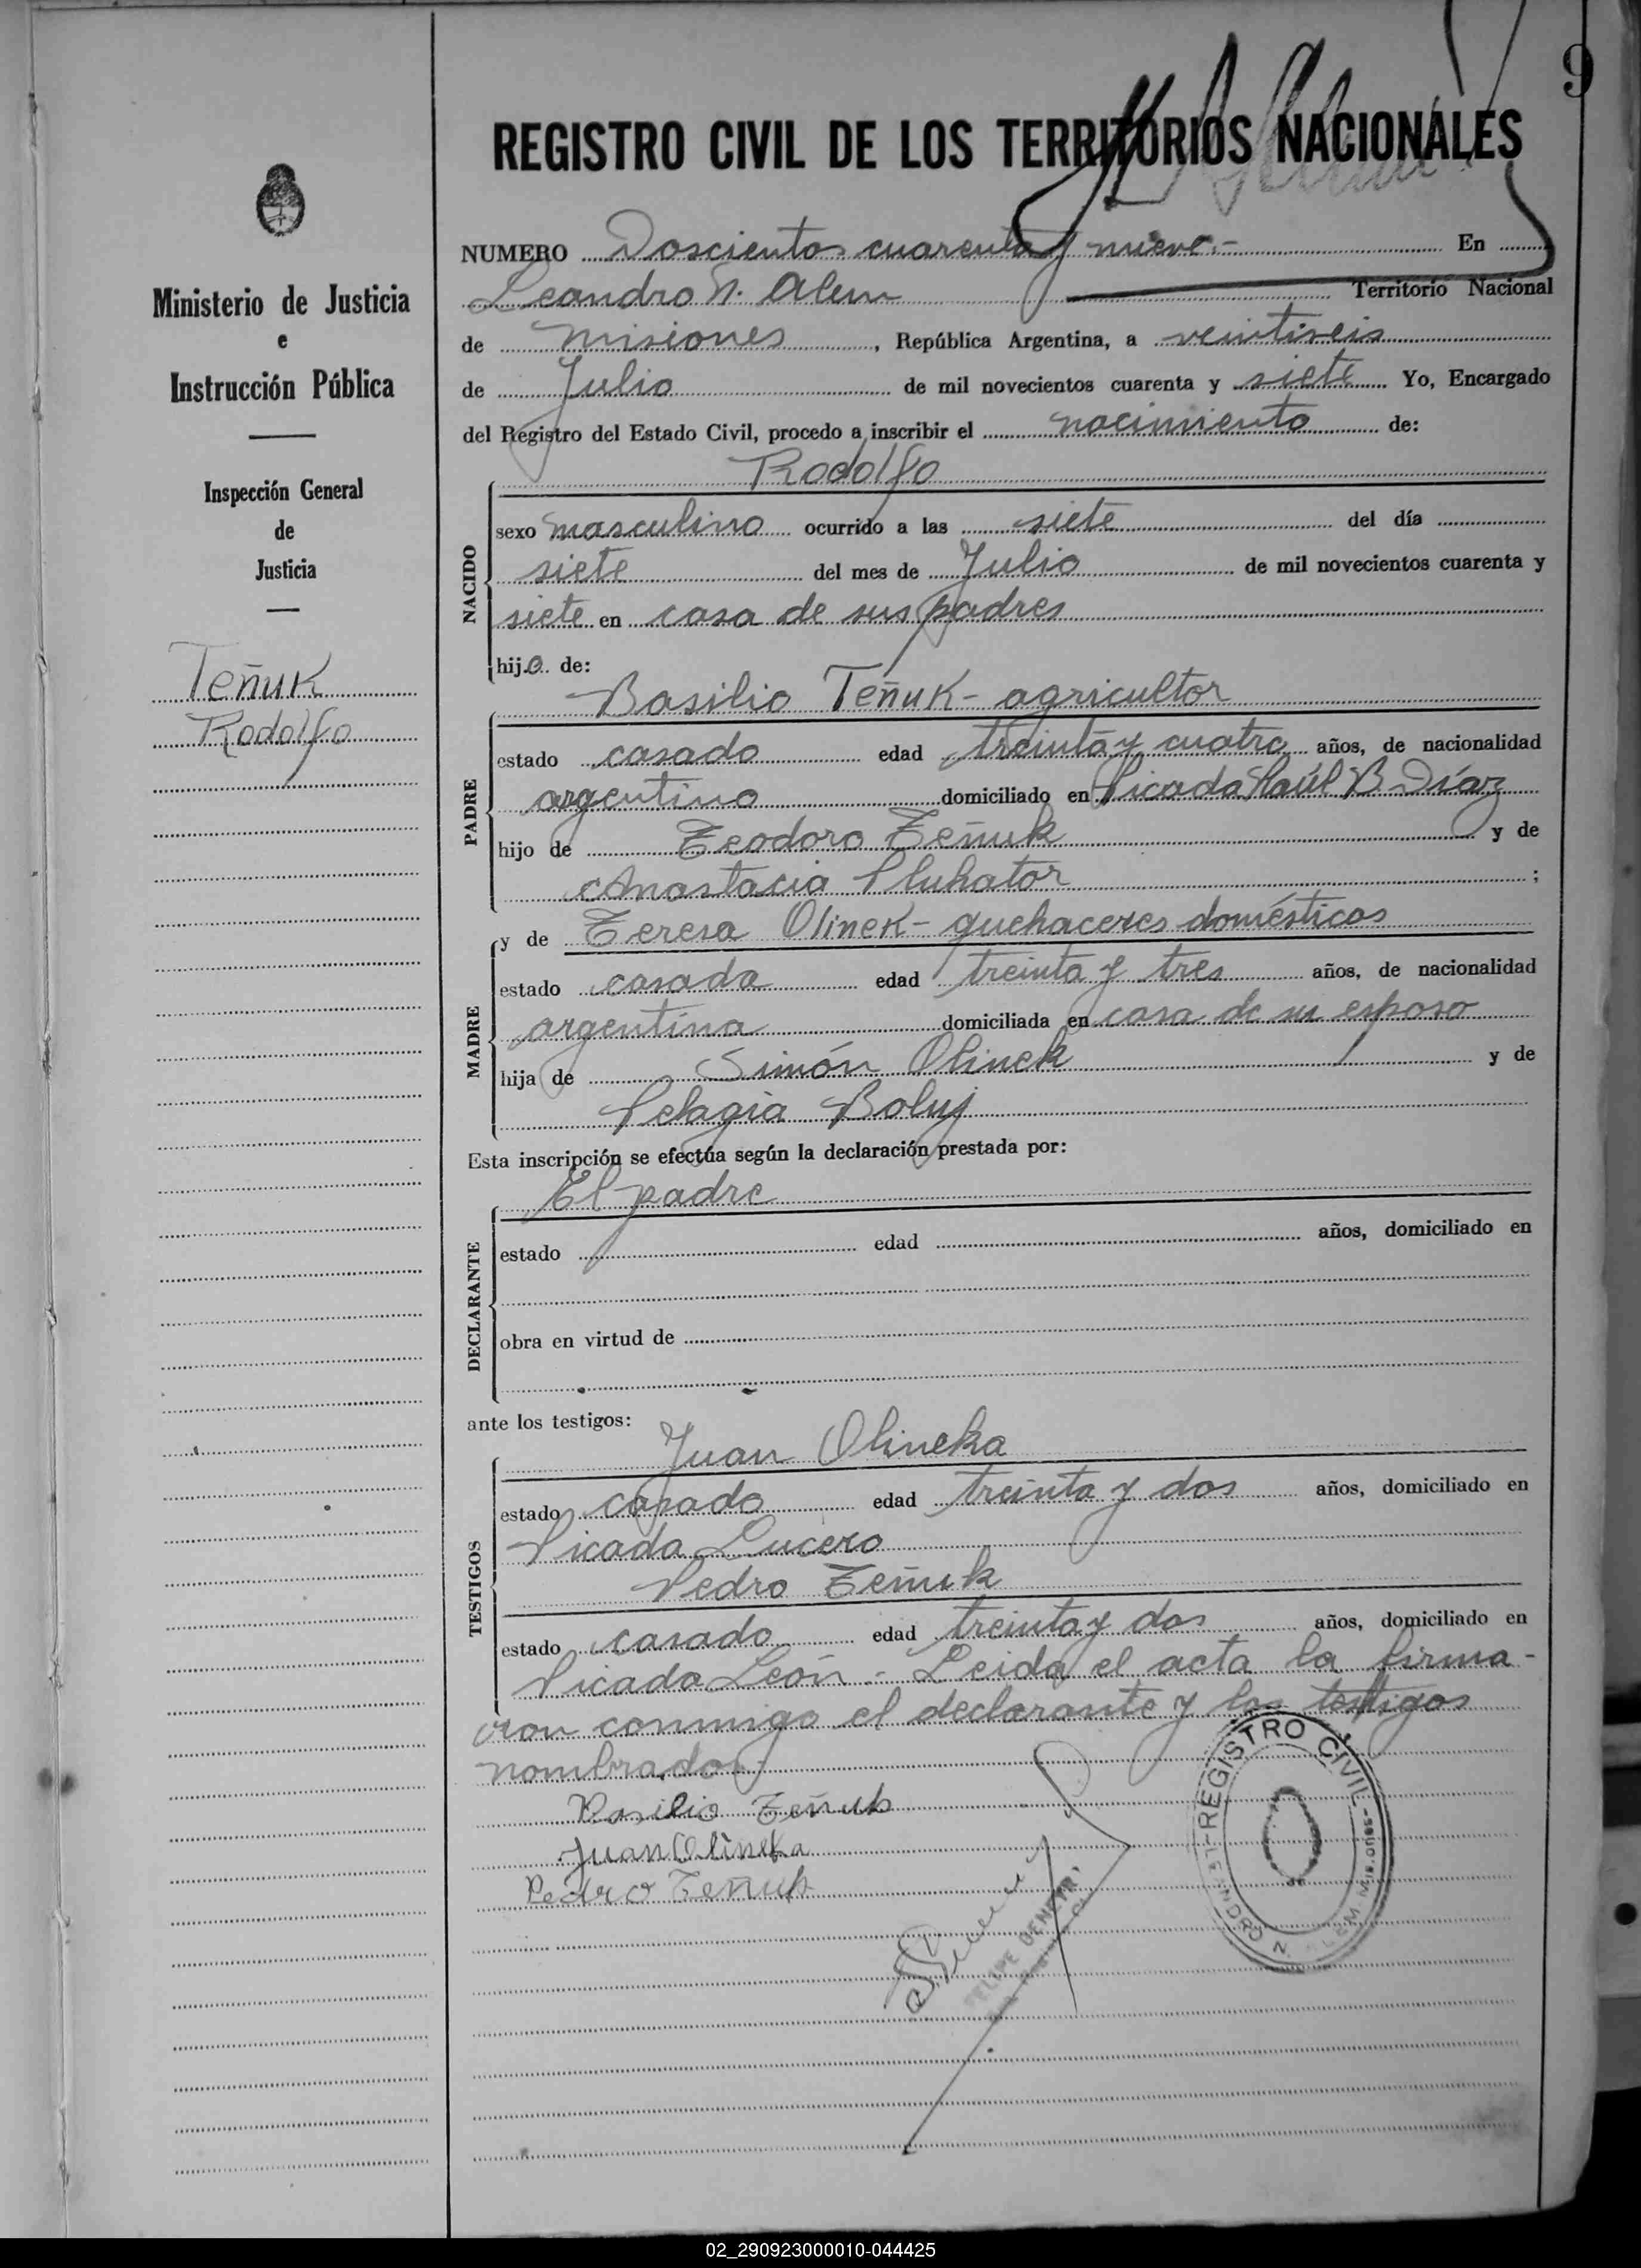 9
REGISTRO CIVIL DE LOS TERRITORIOS NACIONALES
Ministerio de Justicia
e
Instrucción Pública
Inspección General
de
Justicia
Teñuk
Rodolfo
NUMERO Doscientos cuarenta y nueve.- En
Leandro N. Alem Territorio Nacional
de Misiones, República Argentina, a veintiseis
de Julio de mil novecientos cuarenta y siete Yo, Encargado
del Registro del Estado Civil, procedo a inscribir el nacimiento de:
Rodolfo
NACIDO
sexo masculino ocurrido a las siete del día
siete del mes de Julio de mil novecientos cuarenta y
siete en casa de sus padres
hijo de:
Basilio Teñuk - agricultor
PADRE
estado casado edad treinta y cuatro años, de nacionalidad
argentino domiciliado en Picada Raúl B. Díaz
hijo de Teodoro Teñuk y de
Anastacia Pluhator ;
MADRE
y de Teresa Olinek - quehaceres domésticos
estado casada edad treinta y tres años, de nacionalidad
argentina domiciliada en casa de su esposo
hija de Simón Olinek y de
Pelagia Boluj
Esta inscripción se efectúa según la declaración prestada por:
El padre
DECLARANTE
estado edad años, domiciliado en
obra en virtud de
ante los testigos:
Juan Olineka
TESTIGOS
estado casado edad treinta y dos años, domiciliado en
Picada Lucero
Pedro Teñuk
estado casado edad treinta y dos años, domiciliado en
Picada León.- Leida el acta la firma-
ron conmigo el declarante y los testigos
nombrados
Basilio Teñuk
Juan Olineka
Pedro Teñuk
REGISTRO CIVIL
LEANDRO N. ALEM Misiones
02_290923000010-044425